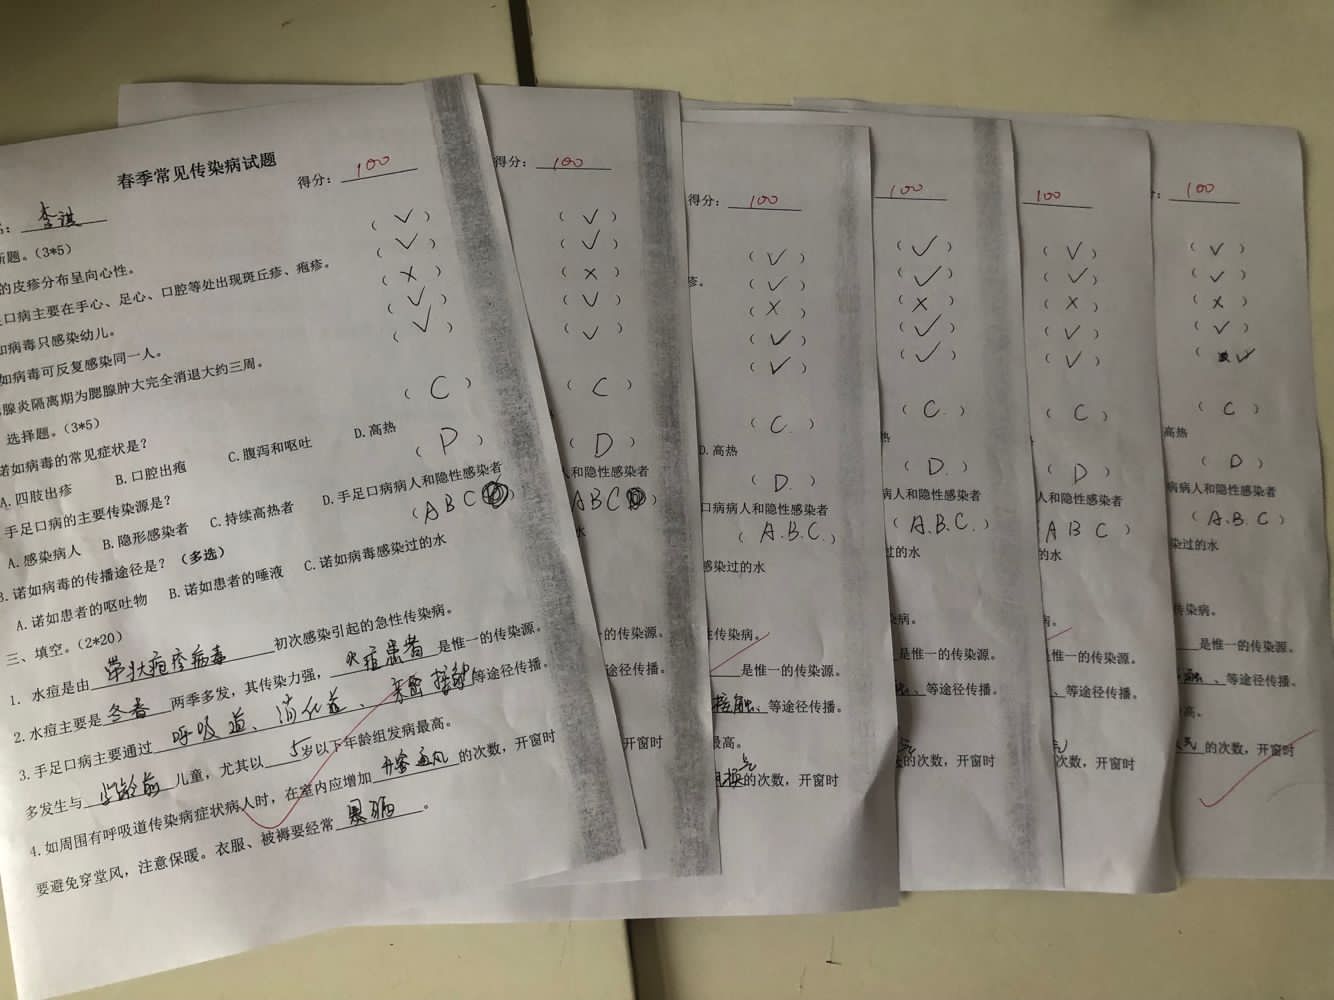 春季常见传染病试题
得分： 100
李祺
题。（3*5）
的皮疹分布呈向心性。 （ ✓ ）
口病主要在手心、足心、口腔等处出现斑丘疹、疱疹。 （ ✓ ）
如病毒只感染幼儿。 （ × ）
如病毒可反复感染同一人。 （ ✓ ）
腺炎隔离期为腮腺肿大完全消退大约三周。 （ ✓ ）
选择题。（3*5）
诺如病毒的常见症状是？ （ C ）
A.四肢出疹 B.口腔出疱 C.腹泻和呕吐 D.高热
手足口病的主要传染源是？ （ D ）
A.感染病人 B.隐形感染者 C.持续高热者 D.手足口病病人和隐性感染者
3.诺如病毒的传播途径是？（多选） （ABC ）
A.诺如患者的呕吐物 B.诺如患者的唾液 C.诺如病毒感染过的水
三、填空。（2*20）
1. 水痘是由 带状疱疹病毒 初次感染引起的急性传染病。
2.水痘主要是 冬春 两季多发，其传染力强， 水痘患者 是惟一的传染源。
3.手足口病主要通过 呼吸道、消化道、亲密接触 等途径传播。
多发生与 学龄前 儿童，尤其以 5 岁以下年龄组发病最高。
4.如周围有呼吸道传染病症状病人时，在室内应增加 开窗通风 的次数，开窗时
要避免穿堂风，注意保暖。衣服、被褥要经常 暴晒 。
得分： 100
（ ✓ ）
（ ✓ ）
（ × ）
（ ✓ ）
（ ✓ ）
（ C ）
（ D ）
人和隐性感染者
ABC ）
水
的传染源。
途径传播。
开窗时
得分： 100
（ ✓ ）
疹。 （ ✓ ）
（ × ）
（ ✓ ）
（ ✓ ）
（ C. ）
D.高热
（ D. ）
口病病人和隐性感染者
（ A.B.C. ）
感染过的水
性传染病。
是惟一的传染源。
接触、等途径传播。
最高。
换气的次数，开窗时
100
（ ✓ ）
（ ✓ ）
（ × ）
（ ✓ ）
（ ✓ ）
（ C. ）
热
（ D. ）
病人和隐性感染者
（ A.B.C. ）
过的水
病。
是惟一的传染源。
、等途径传播。
的次数，开窗时
100
（ ✓ ）
（ ✓ ）
（ × ）
（ ✓ ）
（ ✓ ）
（ C ）
（ D ）
人和隐性感染者
（ A B C ）
的水
。
惟一的传染源。
、等途径传播。
次数，开窗时
100
（ ✓ ）
（ ✓ ）
（ × ）
（ ✓ ）
（ ✓ ）
（ C ）
高热
（ D ）
病病人和隐性感染者
（ A.B.C ）
染过的水
传染病。
是惟一的传染源。
、等途径传播。
高。
气 的次数，开窗时